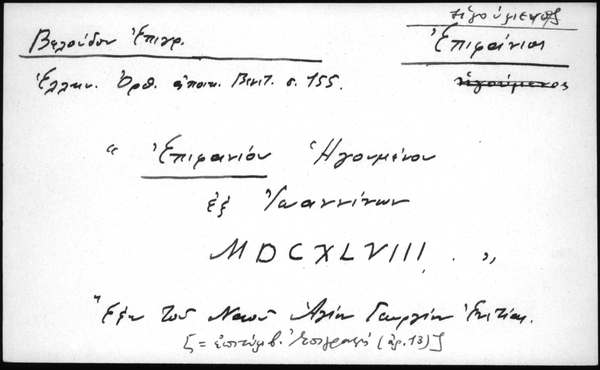 ἡγούμενος
Βελούδου Ἐπιγρ.
Ἐπιφάνιος
Ἑλλην. Ὀρθ. ἀποικ. Βενετ. σ. 155.
ἡγούμενος
“ Ἐπιφανίου Ἡγουμένου
ἐξ Ἰωαννίνων
MDCXLVIII. „
Ἔξω τοῦ Ναοῦ Ἁγίου Γεωργίου Ἐνετίας.
[= ἐπιτύμβ. Ἐπιγραφή (ἀρ. 13)]